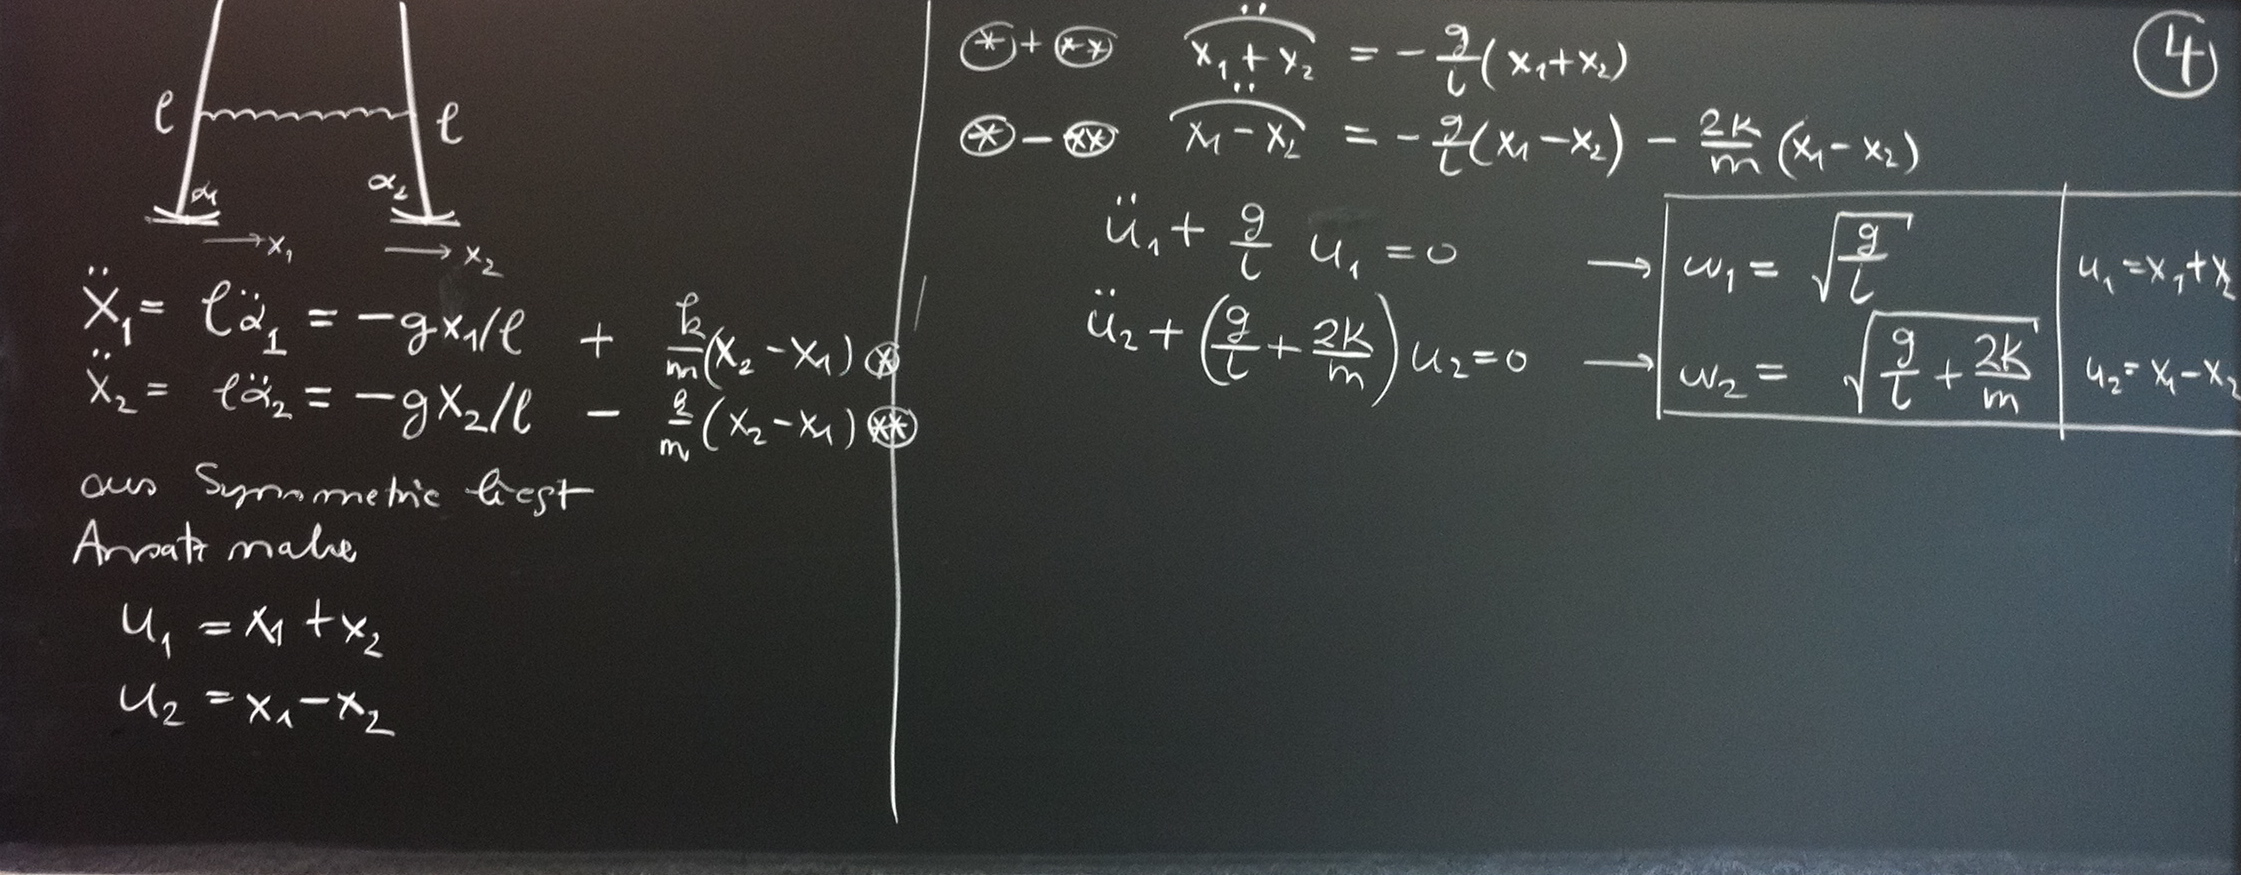 ℓ ℓ
α₁ α₂
→ x₁ → x₂
ẍ₁ = ℓα̈₁ = -gx₁/ℓ + k/m (x₂-x₁) ⊛
ẍ₂ = ℓα̈₂ = -gx₂/ℓ - k/m (x₂-x₁) (**)
aus Symmetrie liest
Ansatz mache
u₁ = x₁ + x₂
u₂ = x₁ - x₂
④
(*) + (**) (x₁ + x₂)¨ = - g/l (x₁+x₂)
(*) - (**) (x₁ - x₂)¨ = - g/l (x₁-x₂) - 2k/m (x₁-x₂)
ü₁ + g/l u₁ = 0 → ω₁ = √(g/l) u₁ = x₁+x₂
ü₂ + (g/l + 2k/m) u₂ = 0 → ω₂ = √(g/l + 2k/m) u₂ = x₁-x₂